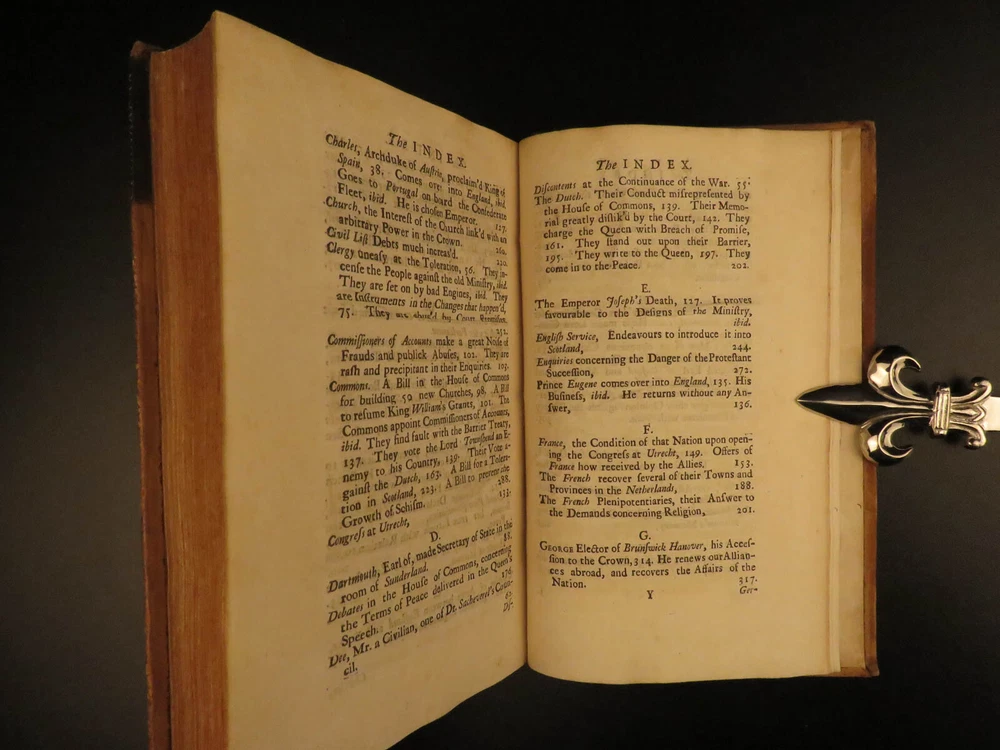 The INDEX.
Charles, Archduke of Auſtria, proclaim'd King of
Spain, 38. Comes over into England, ibid.
Goes to Portugal on board the Confederate
Fleet, ibid. He is choſen Emperor. 127.
Church, the Intereſt of the Church link'd with an
arbitrary Power in the Crown. 262.
Civil Liſt Debts much increas'd. 220.
Clergy uneaſy at the Toleration, 56. They in-
cenſe the People againſt the old Miniſtry, ibid.
They are ſet on by bad Engines, ibid. They
are Inſtruments in the Changes that happen'd,
75. They
252.
Commiſſioners of Accounts make a great Noiſe of
Frauds and publick Abuſes, 102. They are
raſh and precipitant in their Enquiries. 103.
Commons. A Bill in the Houſe of Commons
for building 50 new Churches, 98. A Bill
to reſume King William's Grants, 101. The
Commons appoint Commiſſioners of Accounts,
ibid. They find fault with the Barrier Treaty,
137. They vote the Lord Townſhend an E-
nemy to his Country, 139. Their Vote a-
gainſt the Dutch, 163. A Bill for a Tolera-
tion in Scotland, 223. A Bill to prevent the
Growth of Schiſm. 288.
Congreſs at Utrecht, 153.
D.
Dartmouth, Earl of, made Secretary of State in the
room of Sunderland. 88.
Debates in the Houſe of Commons, concerning
the Terms of Peace delivered in the Queen's
Speech. 176.
Dee, Mr. a Civilian, one of Dr. Sacheverel's Coun-
cil. 62
Dſ-
The INDEX.
Diſcontents at the Continuance of the War. 55.
The Dutch. Their Conduct miſrepreſented by
the Houſe of Commons, 139. Their Memo-
rial greatly diſlik'd by the Court, 142. They
charge the Queen with Breach of Promiſe,
161. They ſtand out upon their Barrier,
195. They write to the Queen, 197. They
come in to the Peace. 202.
E.
The Emperor Joſeph's Death, 127. It proves
favourable to the Deſigns of the Miniſtry,
ibid.
Engliſh Service, Endeavours to introduce it into
Scotland, 244.
Enquiries concerning the Danger of the Proteſtant
Succeſſion, 272.
Prince Eugene comes over into England, 135. His
Buſineſs, ibid. He returns without any An-
ſwer, 136.
F.
France, the Condition of that Nation upon open-
ing the Congreſs at Utrecht, 149. Offers of
France how received by the Allies. 153.
The French recover ſeveral of their Towns and
Provinces in the Netherlands, 188.
The French Plenipotentiaries, their Anſwer to
the Demands concerning Religion, 201.
G.
GEORGE Elector of Brunſwick Hanover, his Acceſ-
ſion to the Crown, 314. He renews our Allian-
ces abroad, and recovers the Affairs of the
Nation. 317.
Y Ger-